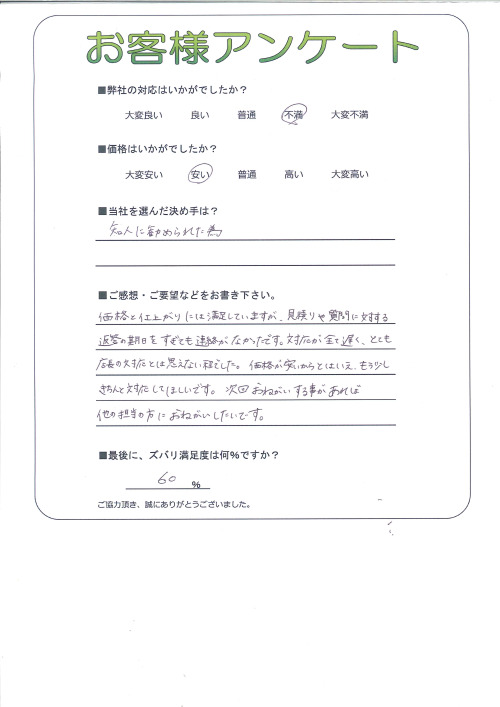 お客様アンケート
■弊社の対応はいかがでしたか？
大変良い　良い　普通　不満　大変不満
■価格はいかがでしたか？
大変安い　安い　普通　高い　大変高い
■当社を選んだ決め手は？
知人に勧められた為
■ご感想・ご要望などをお書き下さい。
価格と仕上がりには満足していますが、見積りや質問に対する
返答の期日をすぎても連絡がなかったです。対応が全て遅く、とても
店長の対応とは思えない程でした。価格が安いからとはいえ、もう少し
きちんと対応してほしいです。次回おねがいする事があれば
他の担当の方におねがいしたいです。
■最後に、ズバリ満足度は何％ですか？
60 ％
ご協力頂き、誠にありがとうございました。